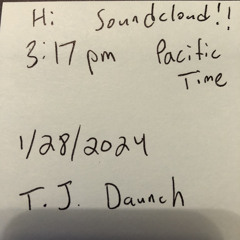 Hi Soundcloud!!
3:17 pm Pacific
Time
1/28/2024
T.J. Daunch